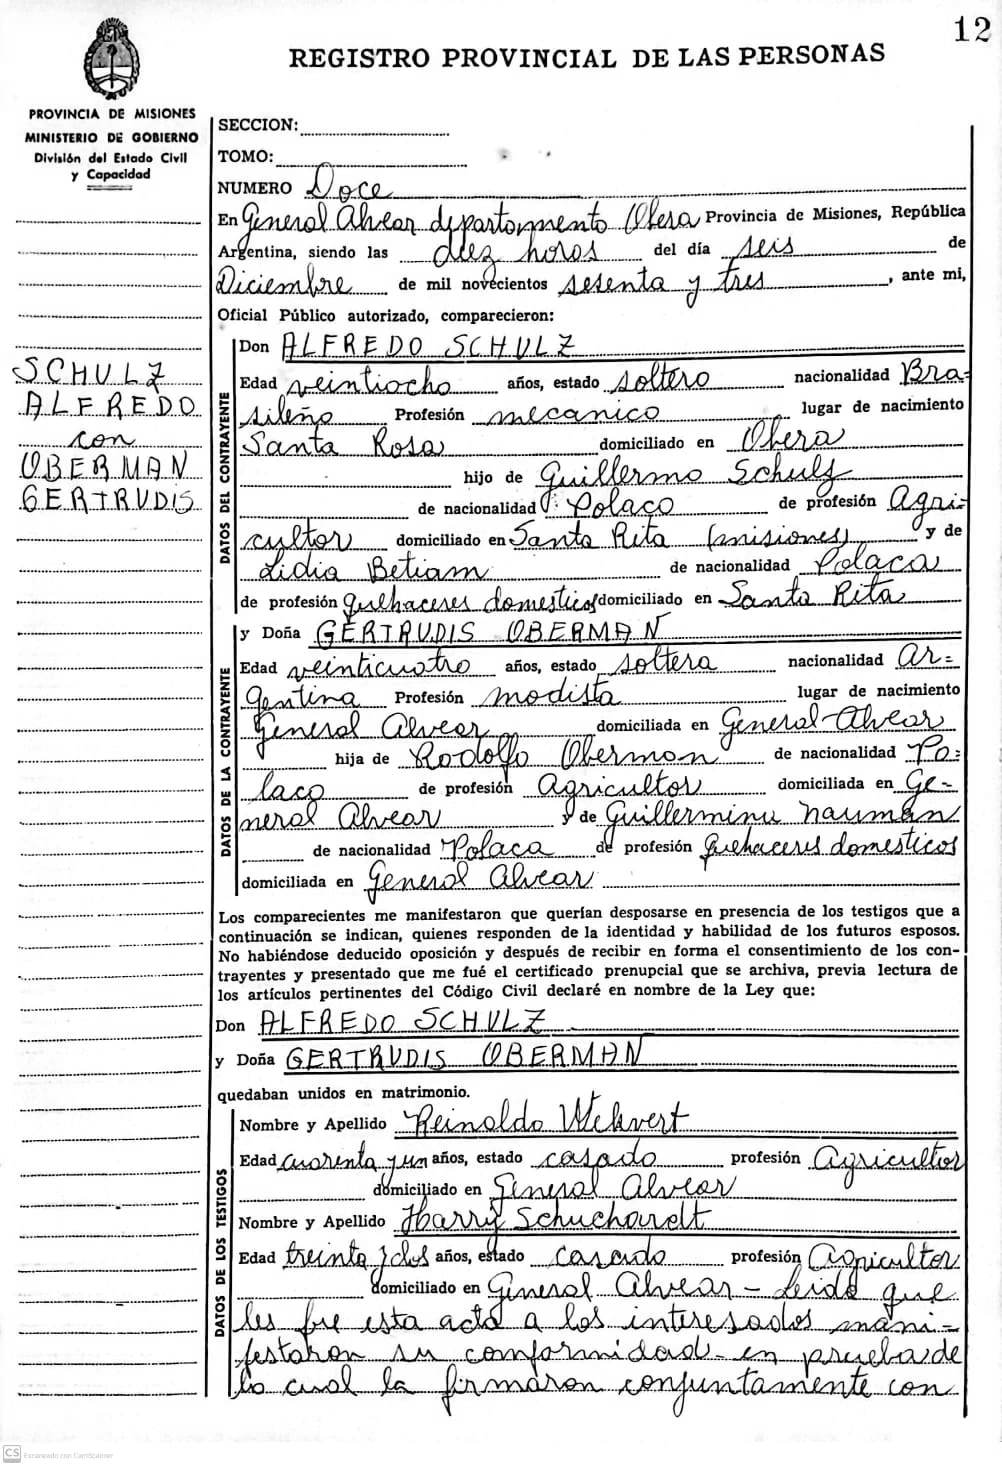 12
REGISTRO PROVINCIAL DE LAS PERSONAS
PROVINCIA DE MISIONES
MINISTERIO DE GOBIERNO
División del Estado Civil
y Capacidad
SECCION:
TOMO:
NUMERO Doce
En General Alvear departamento Obera Provincia de Misiones, República
Argentina, siendo las diez horas del día seis de
Diciembre de mil novecientos sesenta y tres, ante mi,
Oficial Público autorizado, comparecieron:
SCHULZ
ALFREDO
con
OBERMAN
GERTRUDIS
DATOS DEL CONTRAYENTE
Don ALFREDO SCHULZ
Edad veintiocho años, estado soltero nacionalidad Bra=
sileño Profesión mecanico lugar de nacimiento
Santa Rosa domiciliado en Obera
hijo de Guillermo Schulz
de nacionalidad Polaco de profesión Agri-
cultor domiciliado en Santa Rita (misiones) y de
Lidia Betiam de nacionalidad Polaca
de profesión quehaceres domesticos domiciliado en Santa Rita
DATOS DE LA CONTRAYENTE
y Doña GERTRUDIS OBERMAN
Edad veinticuatro años, estado soltera nacionalidad Ar=
gentina Profesión modista lugar de nacimiento
General Alvear domiciliada en General-Alvear
hija de Rodolfo Oberman de nacionalidad Po=
laco de profesión Agricultor domiciliada en Ge-
neral Alvear y de Guillermina nauman
de nacionalidad Polaca de profesión quehaceres domesticos
domiciliada en General Alvear
Los comparecientes me manifestaron que querían desposarse en presencia de los testigos que a
continuación se indican, quienes responden de la identidad y habilidad de los futuros esposos.
No habiéndose deducido oposición y después de recibir en forma el consentimiento de los con-
trayentes y presentado que me fué el certificado prenupcial que se archiva, previa lectura de
los artículos pertinentes del Código Civil declaré en nombre de la Ley que:
Don ALFREDO SCHULZ
y Doña GERTRUDIS OBERMAN
quedaban unidos en matrimonio.
DATOS DE LOS TESTIGOS
Nombre y Apellido Reinaldo
Edad cuarenta y un años, estado casado profesión Agricultor
domiciliado en General Alvear
Nombre y Apellido Harry Schuchardt
Edad treinta y dos años, estado casado profesión Agricultor
domiciliado en General Alvear - Leida que
les fue esta acta a los interesados mani-
festaron su conformidad- en prueba de
lo cual la firmaron conjuntamente con
CS Escaneado con CamScanner